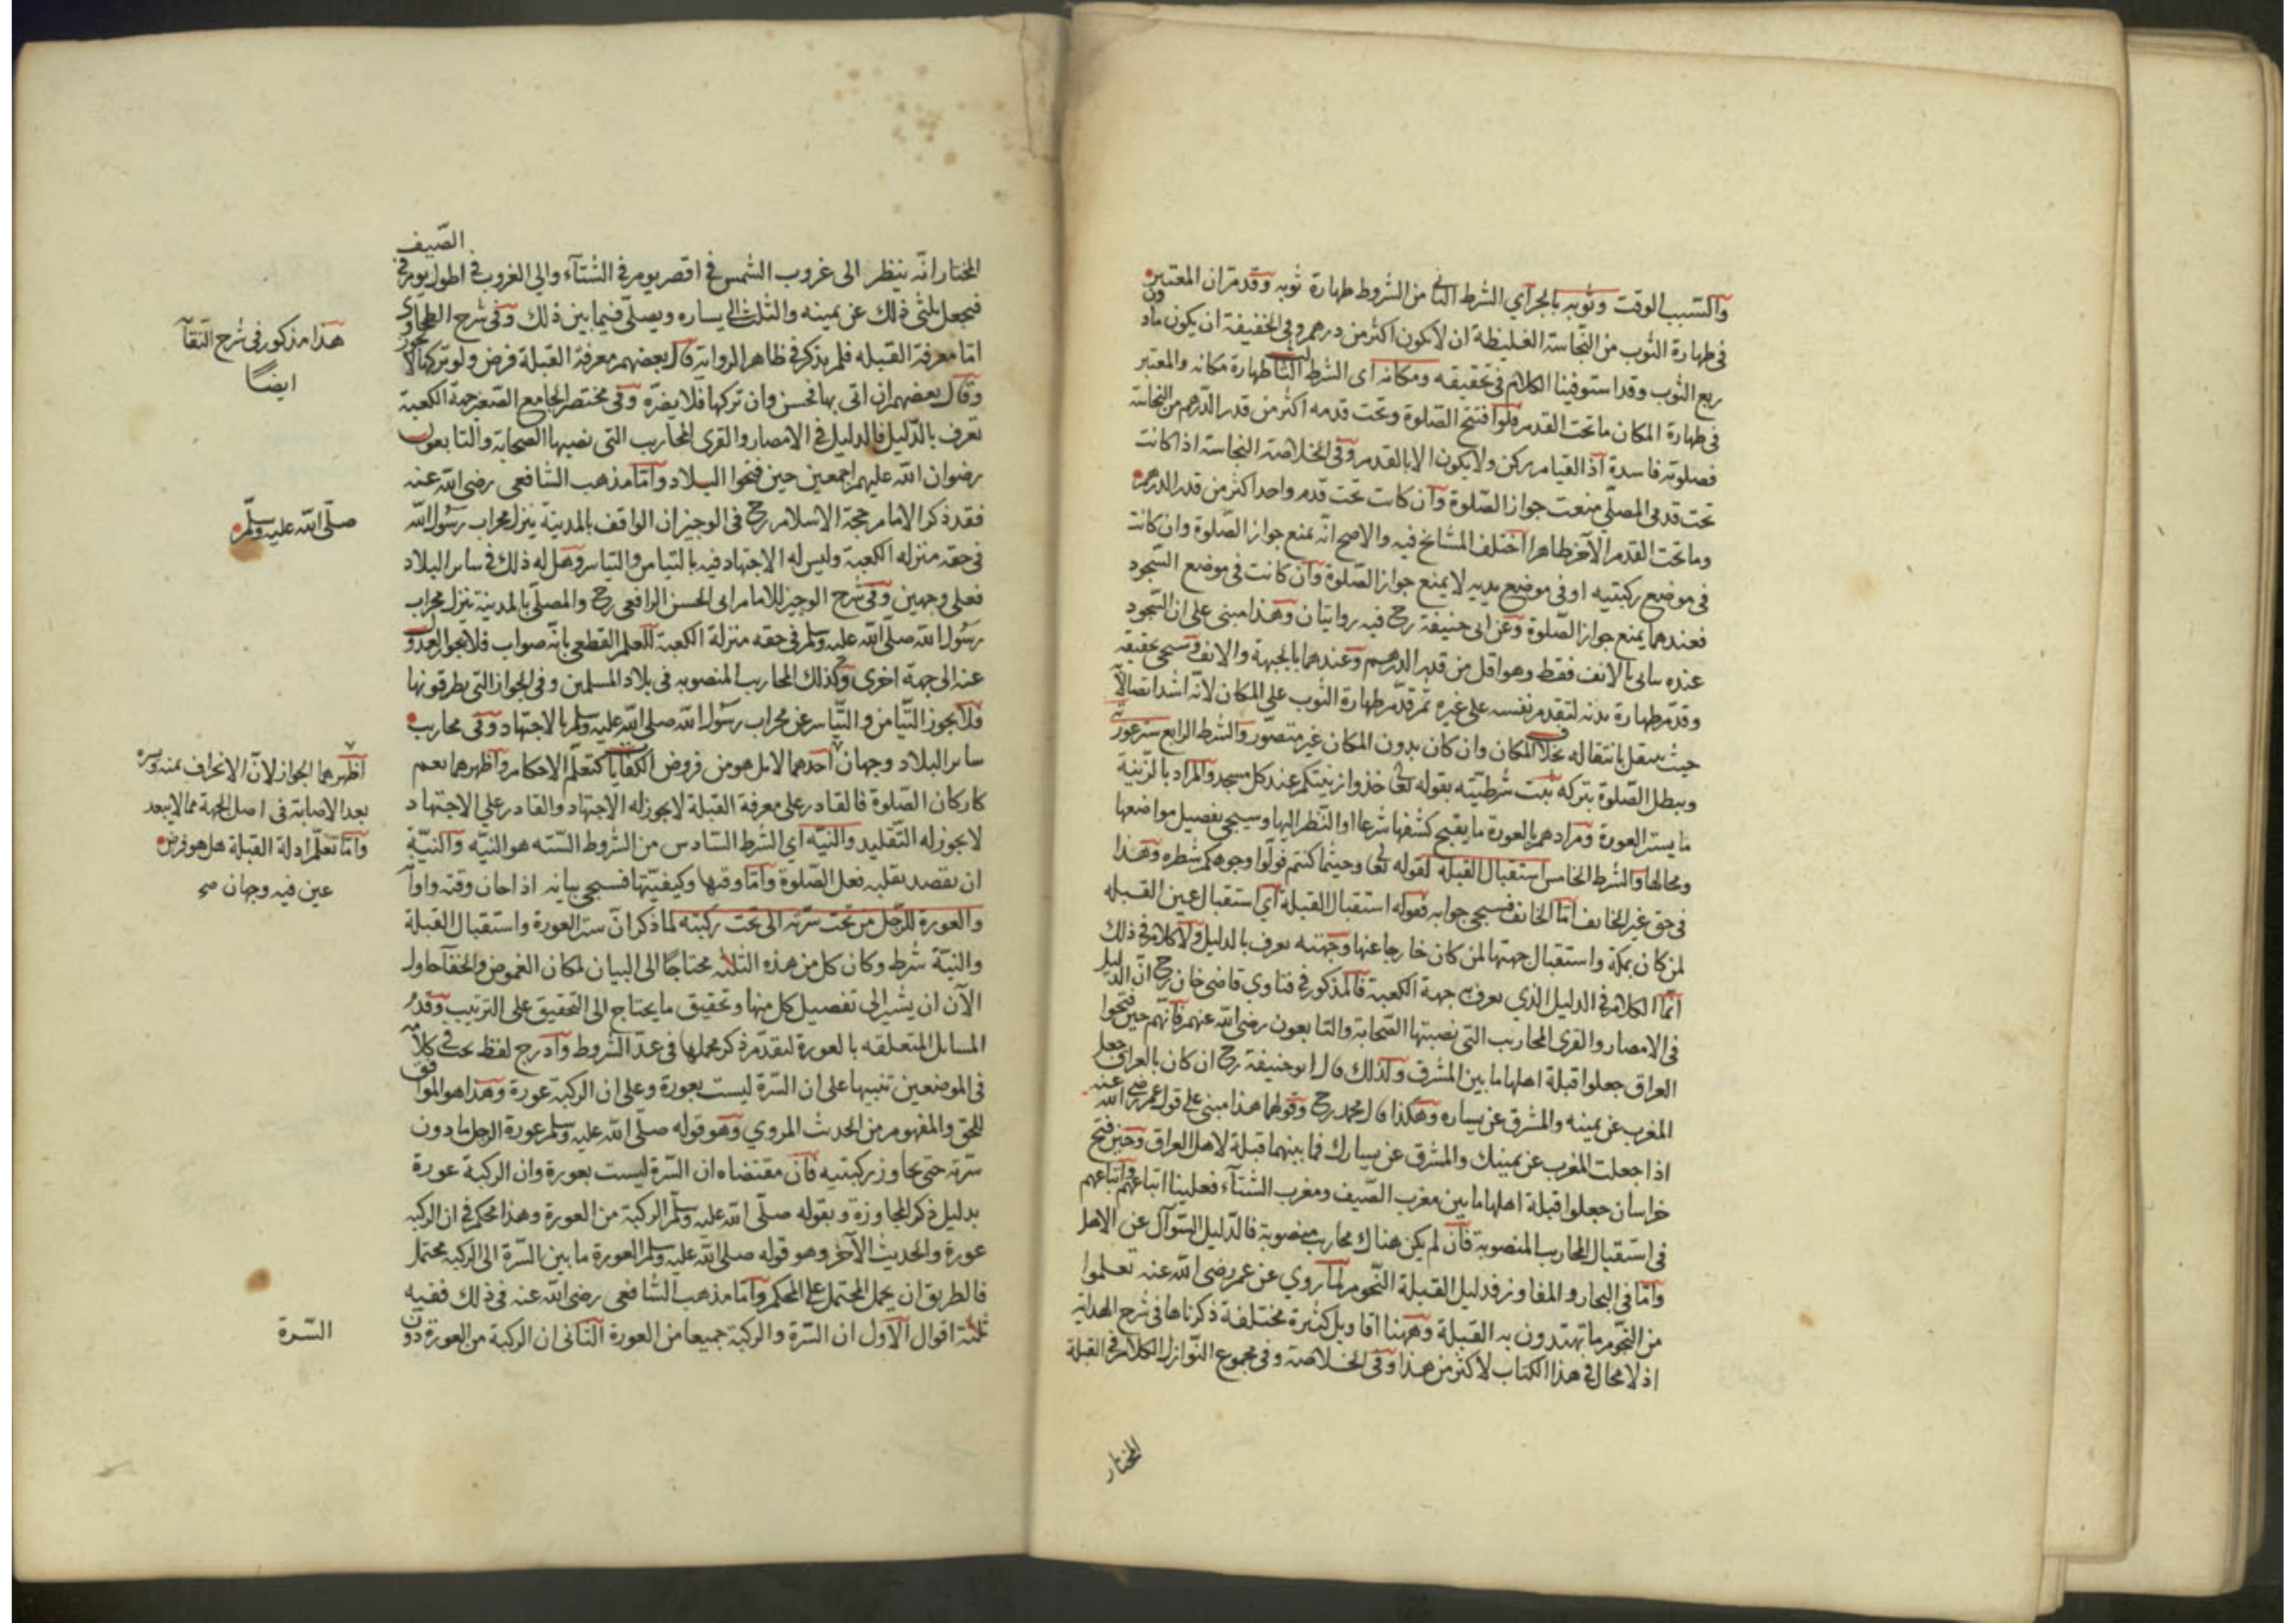 والتسبب الوقت وثوبه بالجر أي الشرط الثاني من الشروط طهارة ثوبه وقد مر ان المعتبر
في طهارة الثوب من النجاسة الغليظة ان لا يكون اكثر من درهم وفي الخفيفة ان يكون مادون
ربع الثوب وقد استوفينا الكلام في تحقيقه ومكانه اى الشرط الثالث طهارة مكانه والمعتبر
في طهارة المكان ما تحت القدم فلو افتتح الصلوة وتحت قدمه اكثر من قدر الدرهم من النجاسة
فصلوته فاسدة اذ القيام ركن ولا يكون الا بالقدم وفي الخلاصة النجاسة اذا كانت
تحت قدمى المصلي منعت جواز الصلوة وان كانت تحت قدم واحد اكثر من قدر الدرهم
وما تحت القدم الآخر طاهرا اختلف المشايخ فيه والاصح انه يمنع جواز الصلوة وان كانت
في موضع ركبتيه او في موضع يديه لا يمنع جواز الصلوة وان كانت في موضع السجود
فعندهما يمنع جواز الصلوة وعن ابى حنيفة رح فيه روايتان وهذا مبنى على ان السجود
عنده يتأتى بالانف فقط وهو اقل من قدر الدرهم وعندهما بالجبهة والانف وسيجئ تحقيقه
وقدم طهارة بدنه لتقدم نفسه على غيره ثم قدم طهارة الثوب على المكان لانه اشد اتصالا
حيث ينتقل بانتقاله بخلاف المكان وان كان بدون المكان غير متصور والشرط الرابع ستر عورته
ويبطل الصلوة بتركه ثبتت شرطيته بقوله تعالى خذوا زينتكم عند كل مسجد والمراد بالزينة
ما يستر العورة ومرادهم بالعورة ما يقبح كشفها شرعا او النظر اليها وسيجئ تفصيل مواضعها
ومحالها والشرط الخامس استقبال القبلة لقوله تعالى وحيثما كنتم فولوا وجوهكم شطره وهذا
في حق غير الخائف اما الخائف فسيجئ جوابه فقوله استقبال القبلة أي استقبال عين القبلة
لمن كان بمكة واستقبال جهتها لمن كان خارجا عنها وجهته يعرف بالدليل ولا كلام في ذلك
انما الكلام في الدليل الذي يعرف به جهة الكعبة فالمذكور في فتاوي قاضي خان رح ان الدليل
في الامصار والقرى المحاريب التى نصبتها الصحابة والتابعون رضى الله عنهم فانهم حين فتحوا
العراق جعلوا قبلة اهلها ما بين المشرق ولذلك قال ابو حنيفة رح ان كان بالعراق جعل
المغرب عن يمينه والمشرق عن يساره وهكذا قال محمد رح وقولهما هذا مبنى على قول عمر رضى الله عنه
اذا جعلت المغرب عن يمينك والمشرق عن يسارك فما بينهما قبلة لاهل العراق وحين فتح
خراسان جعلوا قبلة اهلها ما بين مغرب الصيف ومغرب الشتآء فعلينا اتباعهم واتباعهم
في استقبال المحاريب المنصوبة فان لم يكن هناك محاريب منصوبة فالدليل السوآل عن الاهل
واما في البحار والمفاوز فدليل القبلة النجوم لما روي عن عمر رضى الله عنه تعلموا
من النجوم ما تهتدون به القبلة وههنا اقاويل كثيرة مختلفة ذكرناها في شرح الهداية
اذ لا مجال في هذا الكتاب لاكثر من هذا وفي الخلاصة وفي مجموع النوازل الكلام في القبلة
المختار
المختار انه ينظر الى غروب الشمس في اقصر يوم في الشتآء والى الغروب في اطول يوم في الصيف
فيجعل ثلثى ذلك عن يمينه والثلث الى يساره ويصلى فيما بين ذلك وفي شرح الطحاوى
هذا مذكور في شرح النقآ
ايضا
اما معرفة القبله فلم يذكر في ظاهر الرواية قال بعضهم معرفة القبلة فرض ولو تركها لا يجوز
وقال بعضهم ان اتى بها فحسن وان تركها فلا يضره وفي مختصر الجامع الصغير جهة الكعبة
تعرف بالدليل فالدليل في الامصار والقرى المحاريب التى نصبها الصحابة والتابعون
رضوان الله عليهم اجمعين حين فتحوا البلاد واما مذهب الشافعى رضى الله عنه
فقد ذكر الامام حجة الاسلام رح في الوجيز ان الواقف بالمدينة ينزل محراب رسول الله
صلى الله عليه وسلم
في حقه منزله الكعبة وليس له الاجتهاد فيه بالتيامن والتياسر وهل له ذلك في سائر البلاد
فعلى وجهين وفي شرح الوجيز للامام ابى الحسن الرافعى رح والمصلى بالمدينة ينزل محراب
رسول الله صلى الله عليه وسلم في حقه منزلة الكعبة للعلم القطعى بانه صواب فلا يجوز العدول
عنه الى جهة اخرى وكذلك المحاريب المنصوبه في بلاد المسلمين وفي الجواز التى يطرقونها
فلا يجوز التيامن والتياسر عن محراب رسول الله صلى الله عليه وسلم بالاجتهاد وفي محاريب
سائر البلاد وجهان احدهما لا بل هو من فروض الكفايا كتعلم الاحكام واظهرهما نعم
اظهرهما الجواز لان الانحراف يمنه ويسره
بعد الاصابة في اصل الجهة مما لا يبعد
واما تعلم ادلة القبلة هل هو فرض
عين فيه وجهان صح
كاركان الصلوة فالقادر على معرفة القبلة لا يجوز له الاجتهاد والقادر على الاجتهاد
لا يجوز له التقليد والنية اي الشرط السادس من الشروط السته هو النيه والنية
ان يقصد بقلبه فعل الصلوة واما وقتها وكيفيتها فسيجئ بيانه اذا حان وقته واوآ
والعورة للرجل من تحت سرته الى تحت ركبته لما ذكر ان ستر العورة واستقبال القبلة
والنية شرط وكان كل من هذه الثلثه محتاجا الى البيان لمكان الغموض والخفآ حاول
الآن ان يشير الى تفصيل كل منها وتحقيق ما يحتاج الى التحقيق على الترتيب وقدم
المسائل المتعلقه بالعورة لتقدم ذكر مجملها في عد الشروط وادرج لفظ تحت في كلا
في الموضعين تنبيها على ان السرة ليست بعورة وعلى ان الركبة عورة وهذا هو الموافق
للحق والمفهوم من الحديث المروي وهو قوله صلى الله عليه وسلم عورة الرجل ما دون
سرته حتى يجاوز ركبتيه فان مقتضاه ان السرة ليست بعورة وان الركبة عورة
بدليل ذكر المجاوزة وبقوله صلى الله عليه وسلم الركبة من العورة وهذا محكم في ان الركبه
عورة والحديث الآخر وهو قوله صلى الله عليه وسلم العورة ما بين السرة الى الركبه محتمل
فالطريق ان يحمل المحتمل على المحكم واما مذهب الشافعى رضى الله عنه في ذلك ففيه
ثلثة اقوال الاول ان السرة والركبة جميعا من العورة الثانى ان الركبة من العورة دون
السرة